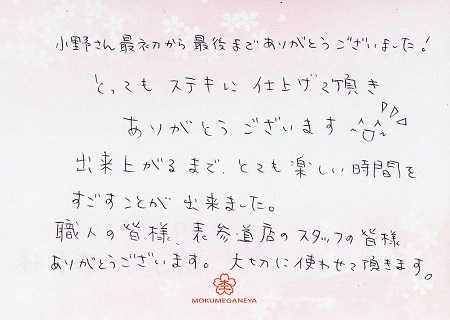 小野さん最初から最後までありがとうございました!
とってもステキに仕上げて頂き
ありがとうございます
出来上がるまで、とても楽しい時間を
すごすことが出来ました。
職人の皆様、表参道店のスタッフの皆様
ありがとうございます。大切に使わせて頂きます。
MOKUMEGANEYA